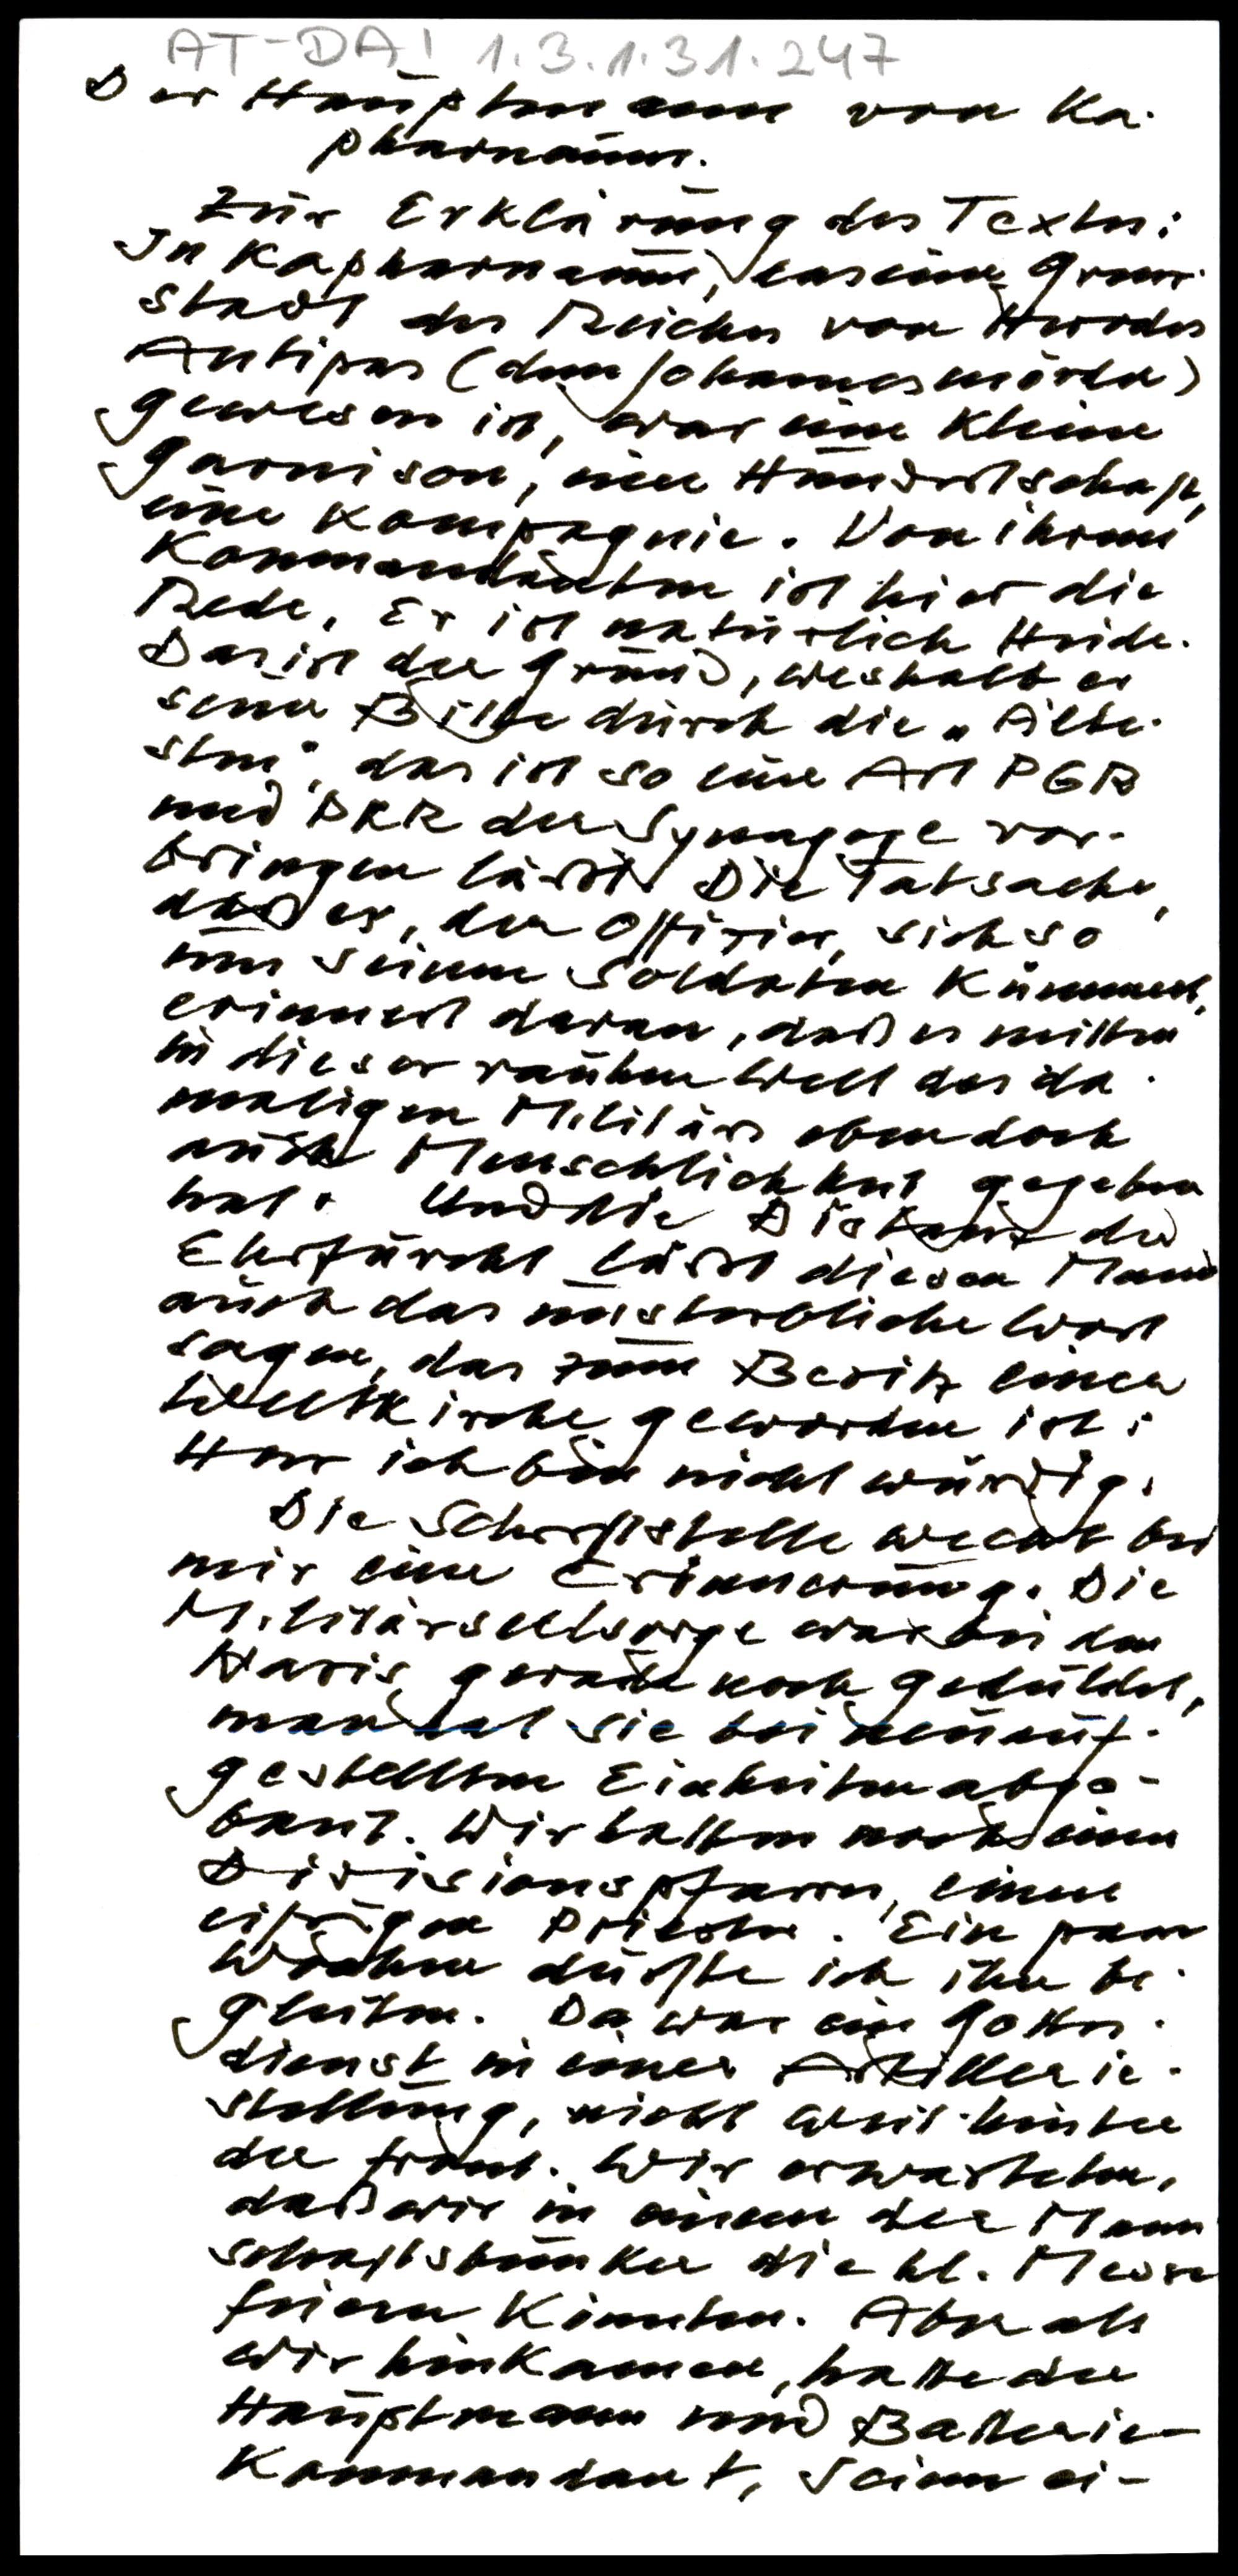 AT-DAI 1.3.1.31.247
Der Hauptmann von Ka-
pharnaum.
Zur Erklärung des Textes:
In Kapharnaum, das eine Grenz-
stadt des Reiches von Herodes
Antipas (dem Johannesmörder)
gewesen ist, war eine kleine
Garnison, eine Hundertschaft,
eine Kompagnie. Von ihrem
Kommandanten ist hier die
Rede. Er ist natürlich Heide.
Das ist der Grund, weshalb er
seine Bitte durch die „Älte-
sten", das ist so eine Art PGR
und PKR der Synagoge vor-
bringen läßt. Die Tatsache,
daß er, der Offizier, sich so
um seinen Soldaten kümmert,
erinnert daran, daß es mitten
in dieser rauhen Welt des da-
maligen Militärs eben doch
auch Menschlichkeit gegeben
hat. Und die Distanz der
Ehrfurcht läßt diesen Mann
auch das unsterbliche Wort
sagen, das zum Besitz einer
Weltkirche geworden ist:
Herr ich bin nicht würdig.
Die Schriftstelle weckt bei
mir eine Erinnerung. Die
Militärseelsorge war bei den
Nazis gerade noch geduldet,
man hat sie bei neuauf-
gestellten Einheiten abge-
baut. Wir hatten noch einen
Divisionspfarrer, einen
eifrigen Priester. Ein paar
Wochen durfte ich ihn be-
gleiten. Da war ein Gottes-
dienst in einer Artillerie-
stellung, nicht weit hinter
der Front. Wir erwarteten,
daß wir in einem der Mann
schaftsbunker die hl. Messe
feiern könnten. Aber als
wir hinkamen, hatte der
Hauptmann und Batterie-
Kommandant, seinen ei-